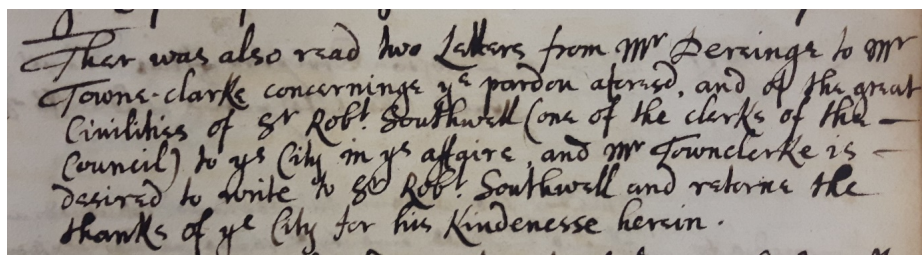 Ther was also read two Letters from Mr Deringe to Mr
Towne-clarke concerninge ye pardon aforesd, and of the great
Civilities of Sr Robt. Southwell (one of the clerks of the —
Council) to ye City in ye affaire, and Mr Townclerke is —
desired to write to Sr Robt. Southwell and retorne the
thanks of ye City for his Kindenesse herein.